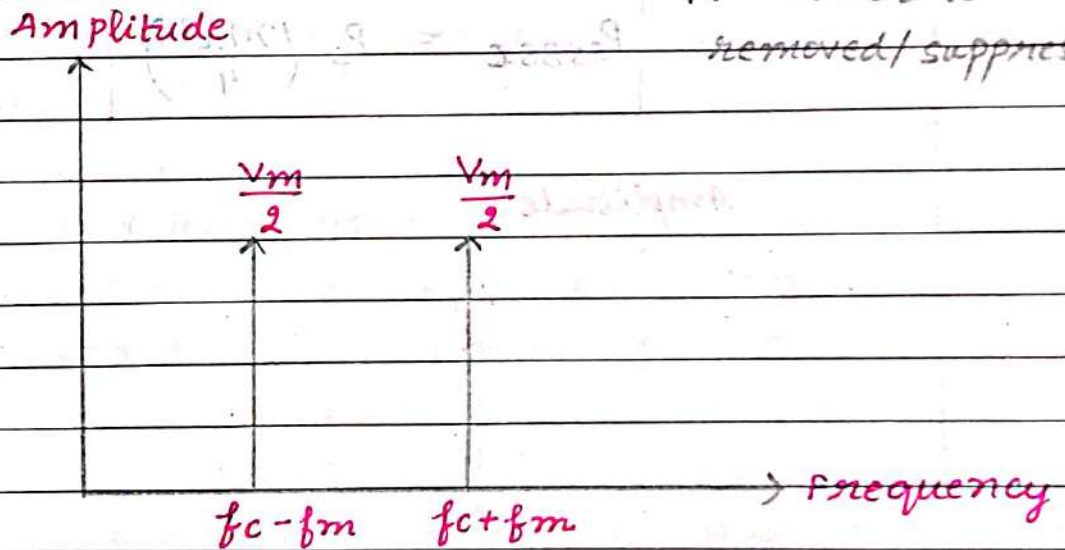 Amplitude
removed/ suppres
Vm/2 Vm/2
fc-fm fc+fm
Frequency